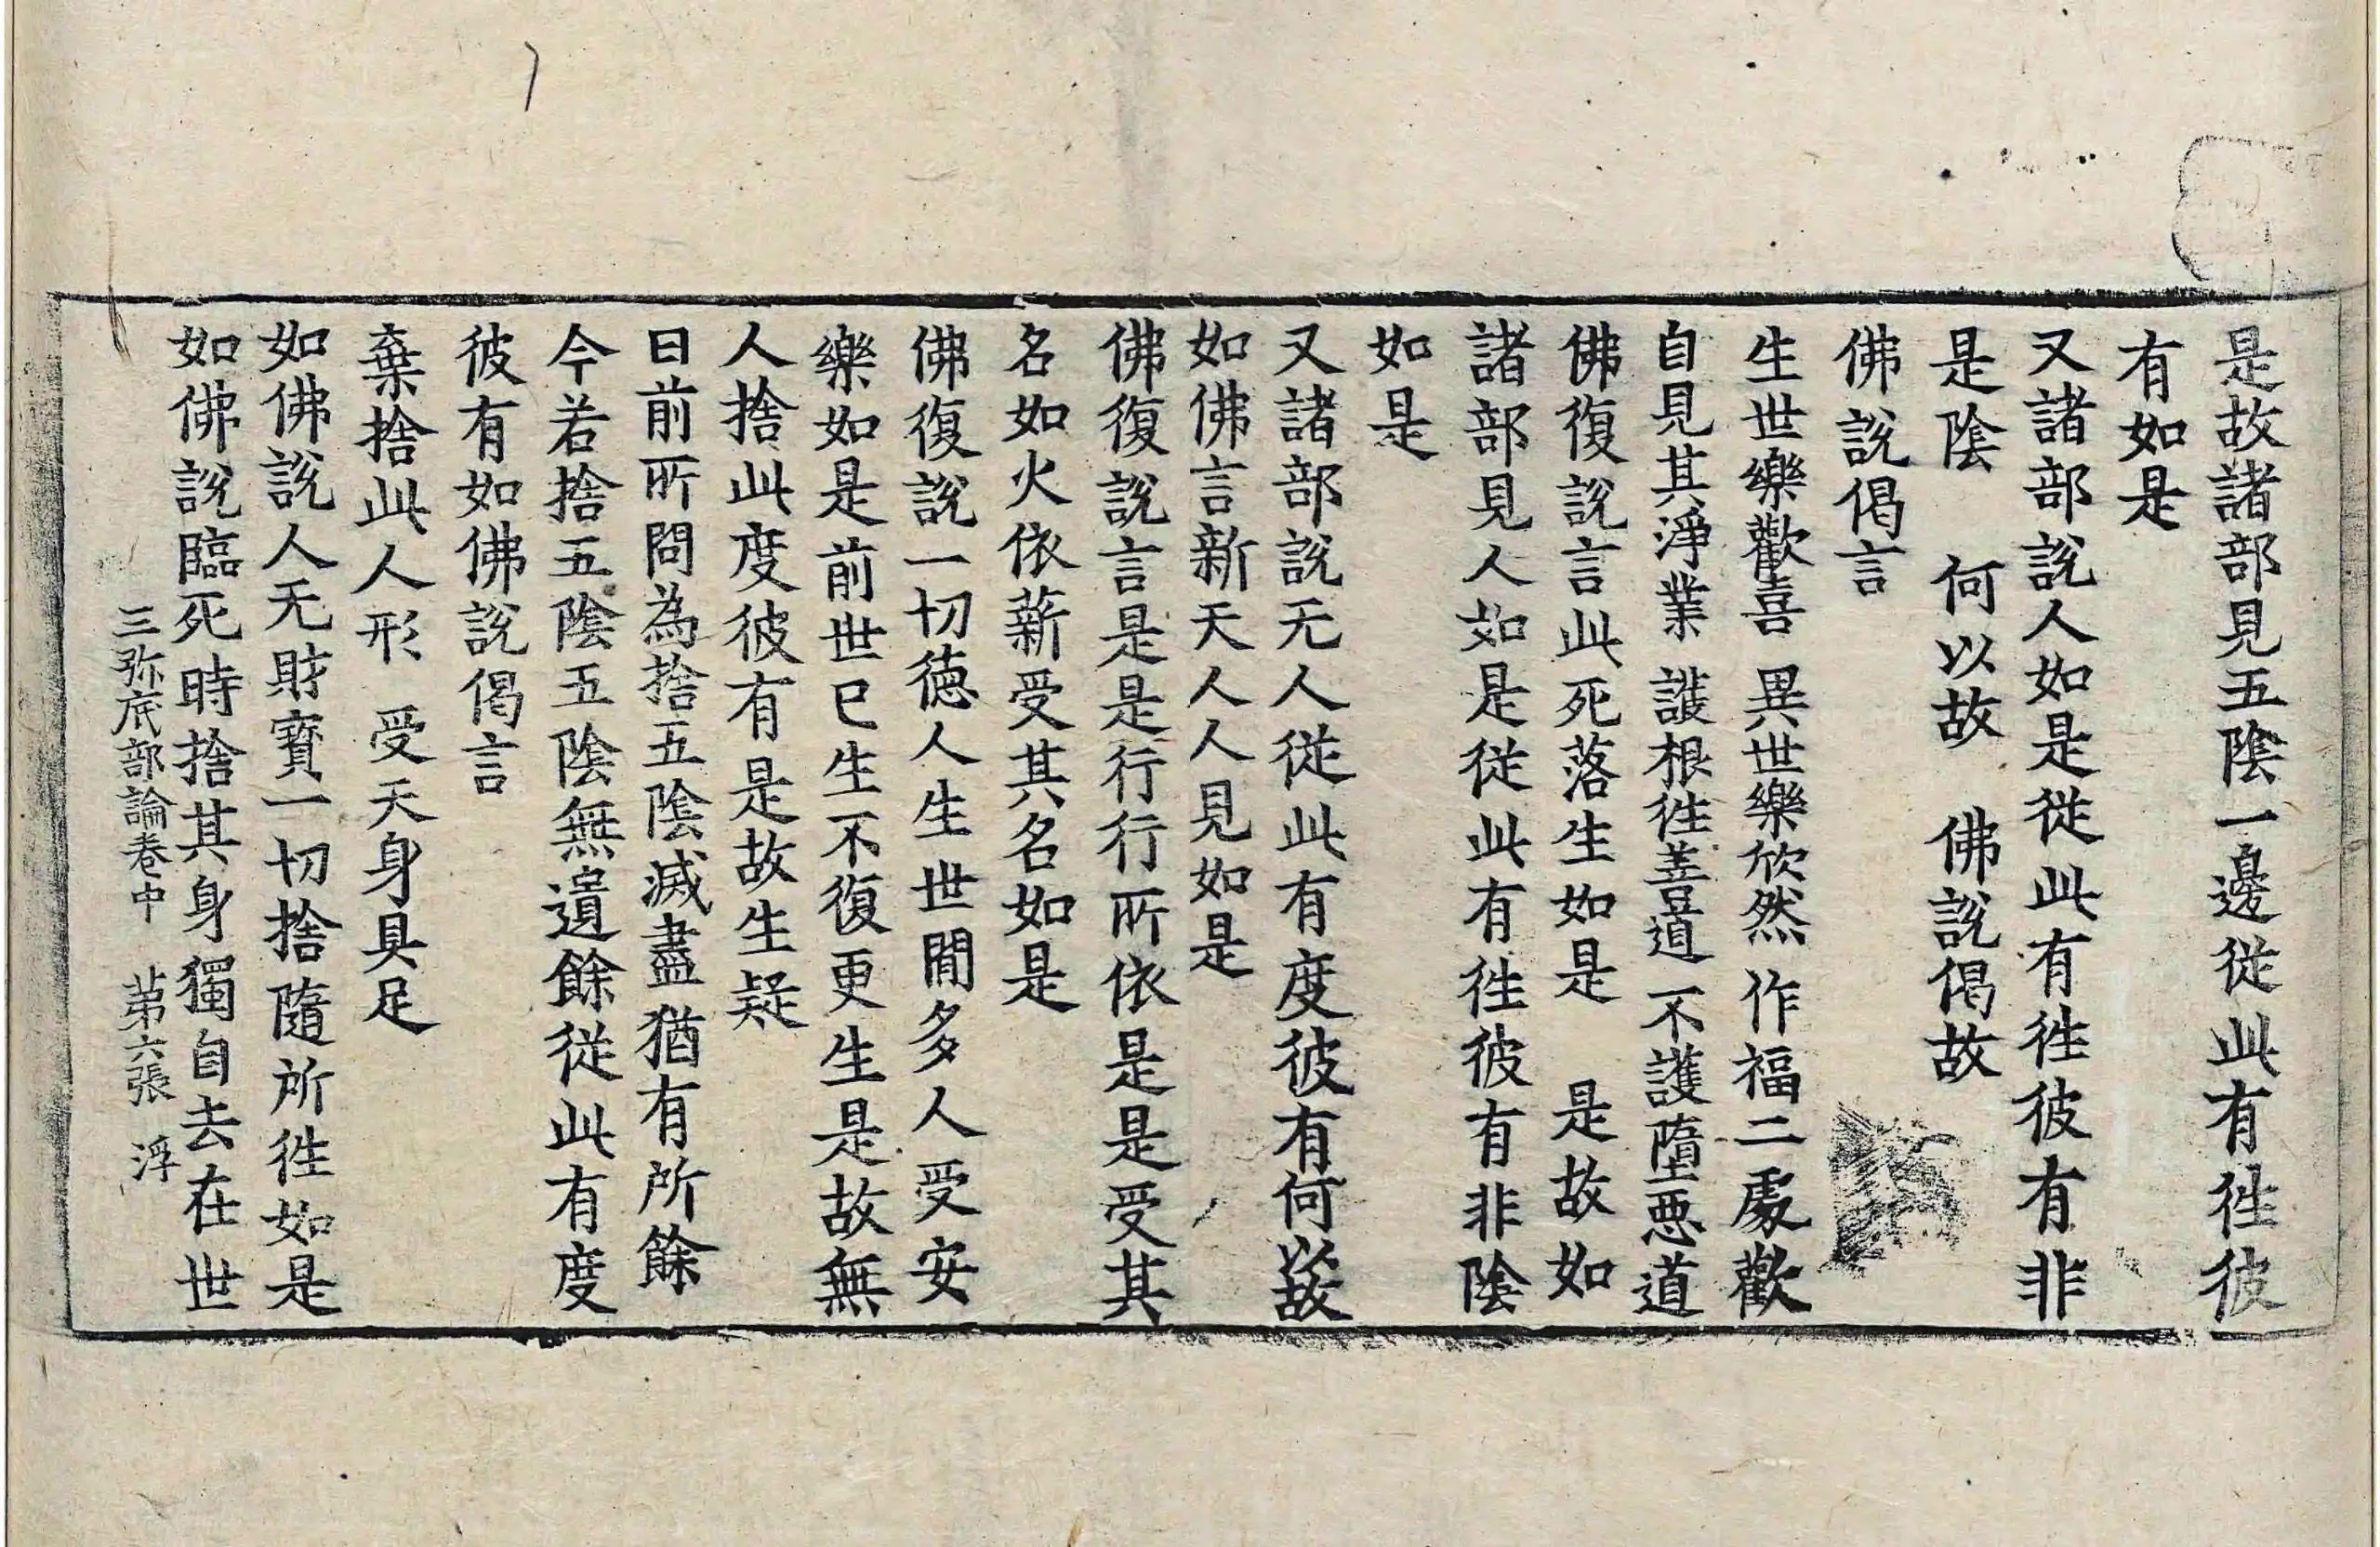 是故諸部見五陰一邊從此有徃彼
有如是
又諸部說人如是從此有徃彼有非
是陰 何以故 佛說偈故
佛說偈言
生世樂歡喜 異世樂欣然 作福二處歡
自見其淨業 護根徃善道 不護墮惡道
佛復說言此死落生如是 是故如
諸部見人如是從此有徃彼有非陰
如是
又諸部說无人從此有度彼有何以故
如佛言新天人人見如是
佛復說言是是行行所依是是受其
名如火依薪受其名如是
佛復說一切德人生世間多人受安
樂如是前世已生不復更生是故無
人捨此度彼有是故生疑
曰前所問為捨五陰滅盡猶有所餘
今若捨五陰五陰無遺餘從此有度
彼有如佛說偈言
棄捨此人形 受天身具足
如佛說人无財寶一切捨隨所徃如是
如佛說臨死時捨其身獨自去在世
三弥底部論卷中 苐六張 浮